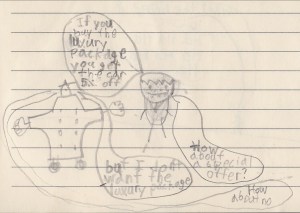 If you
buy the
luxury
package
you get
the car
5% off
but I don't
want the
luxury package
How
about
a special
offer?
How
about no